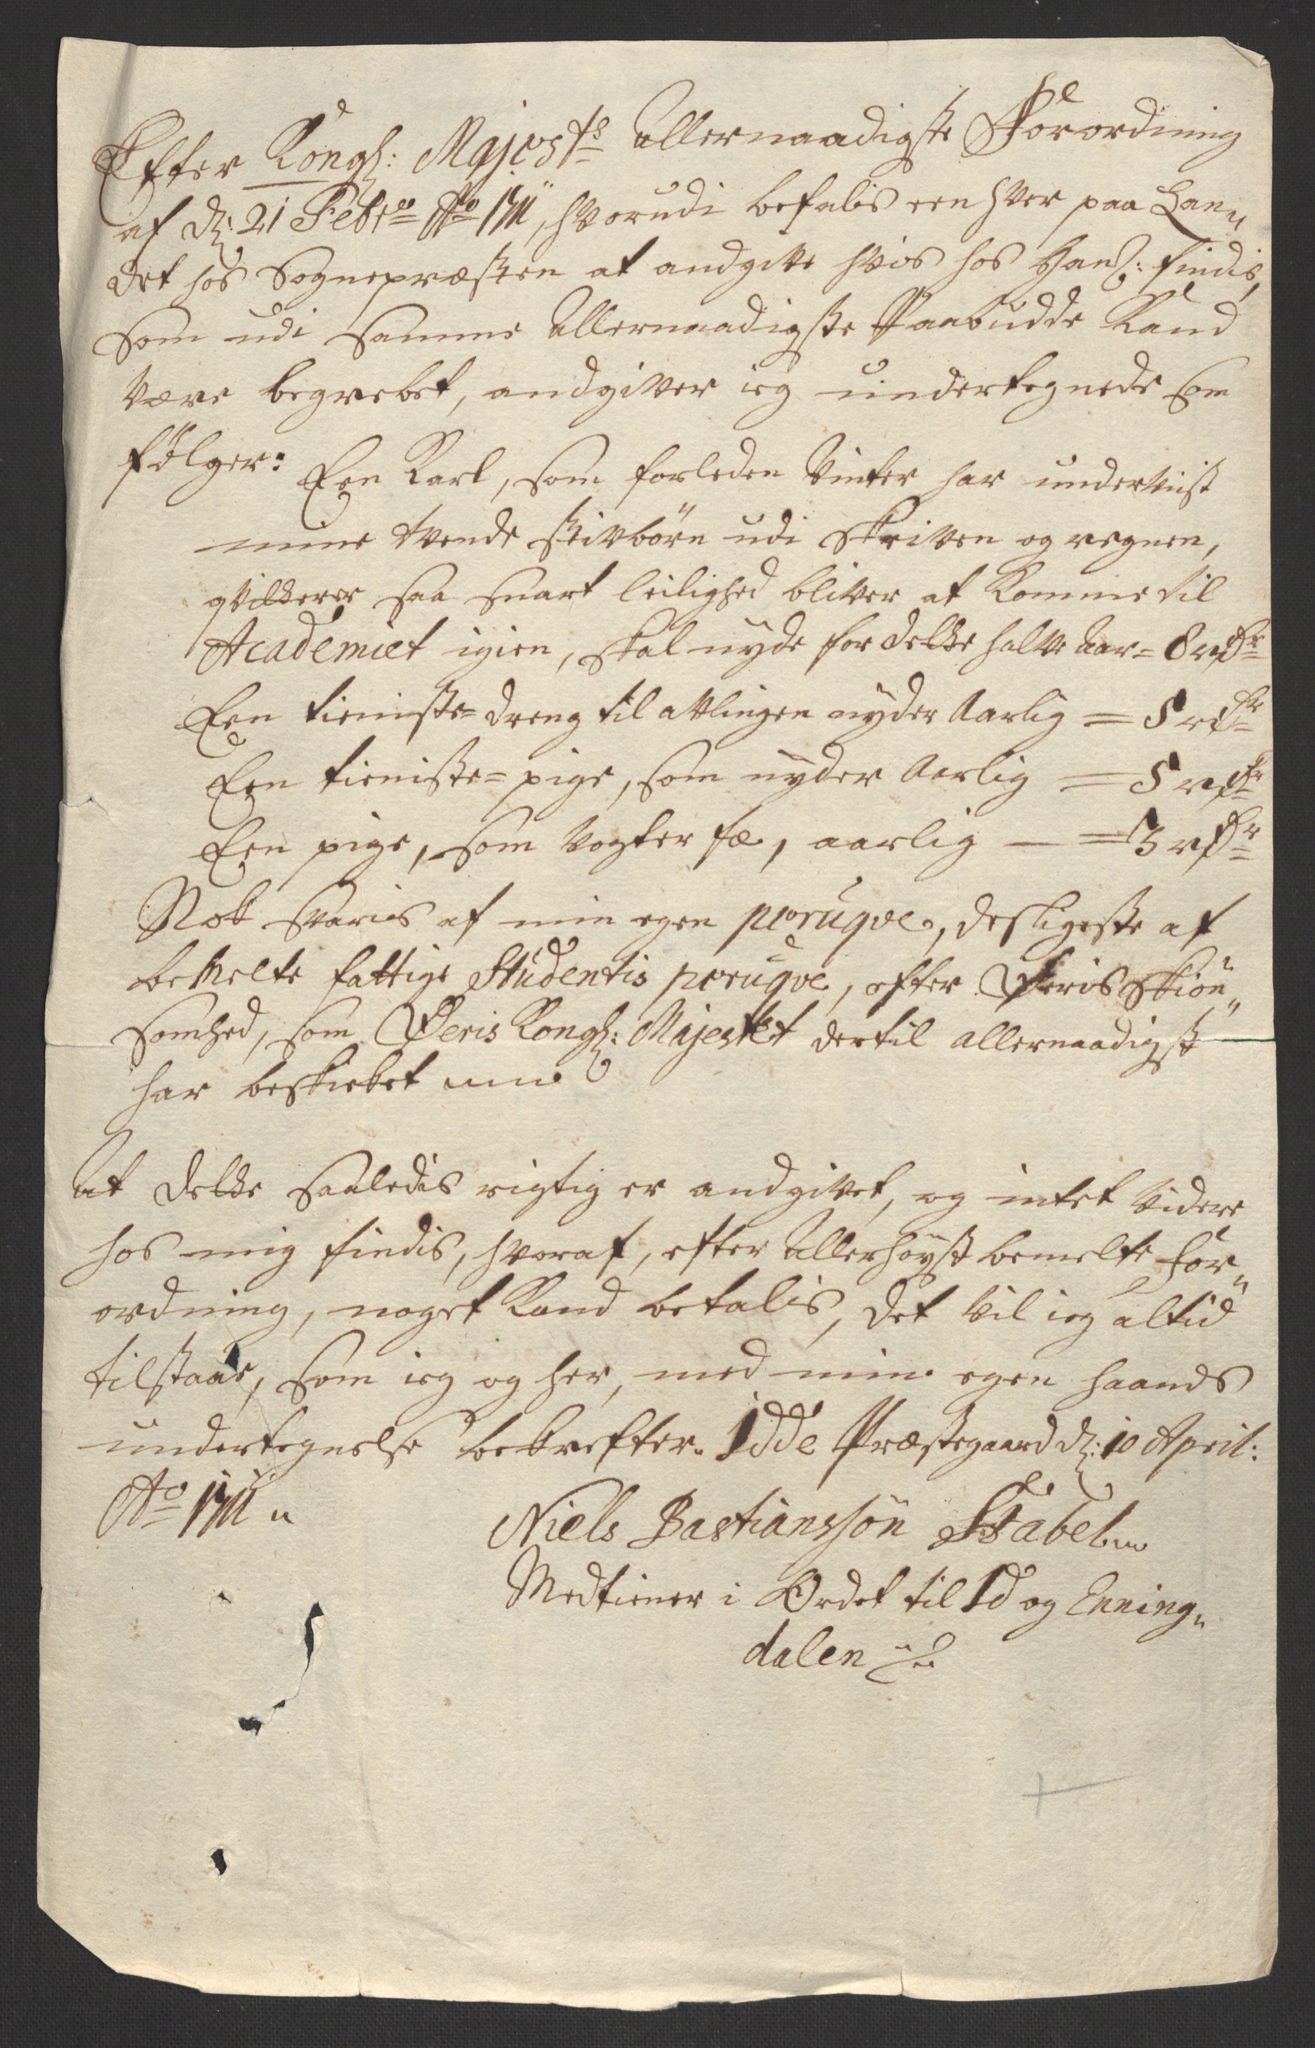 Efter Kongl: Majest:s Allernaadigste Forordning
af d: 21 Febr: Ao 1711, hvorudi befalis een hver paa Lan-
det hos Sognepræsten at andgive hvis hos Ham: findis,
som udi samme Allernaadigste Paabudde kand
være begrebet, andgiver ieg undertegnede som
følger:
Een Karl, som forleden Vinter har underviist
mine tvende stivbörn udi skriven og regnen,
qvilkerer saa snart leilighed bliver at komme til
Academiet igien, skal nyde for dette halve Aar = 8 rdr
Een tieniste-dreng til avlingen nyder Aarlig = 8 rdr
Een tieniste-pige, som nyder Aarlig = 5 rdr
Een pige, som vogter fæ, aarlig = 3 rdr
Nok svaris af min egen peruqve, desligeste af
bemelte fattige Studentis peruqve, efter Deris skiön-
somhed, som Deris Kongl: Majestet dertil allernaadigst
har beskicket
At dette saaledis rigtig er andgivet, og intet videre
hos mig findis, hvoraf, efter Allerhöyst bemelte For-
ordning, noget kand betalis, det vil ieg altid
tilstaae, som ieg og her, med min egen haands
undertegnelse bekrefter. Idde Præstegaard d: 10 April:
Ao 1711
Niels Bastianssön Stabel
Medtiener i Ordet til Id og Enning-
dalen